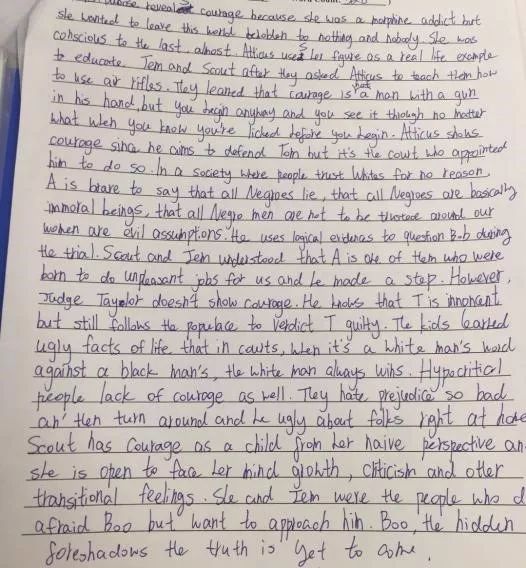 revealed courage because she was a morphine addict but
she wanted to leave this world beholden to nothing and nobody. She was
conscious to the last, almost. Atticus uses her figure as a real life example
to educate Jem and Scout after they asked Atticus to teach them how
to use air rifles. They leaned that courage is not a man with a gun
in his hand, but you begin anyway and you see it though no matter
what when you know you're licked before you begin. Atticus shows
courage since he aims to defend Tom but it's the court who appointed
him to do so. In a society where people trust Whites for no reason,
A is brave to say that all Negroes lie, that all Negroes are basically
immoral beings, that all Negro men are not to be around our
women are evil assumptions. He uses logical evidence to question Bob during
the trial. Scout and Jem understood that A is one of them who were
born to do unpleasant jobs for us and he made a step. However,
Judge Taylor doesn't show courage. He knows that T is innonant
but still follows the populace to verdict T guilty. The kids learned
ugly facts of life, that in courts, when it's a white man's word
against a black man's, the white man always wins. Hypocritial
people lack of courage as well. They hate prejudice so bad
an' then turn around and be ugly about folks right at home
Scout has courage as a child from her naive perspective an
she is open to face her mind growth, cliticism and other
transitional feelings. She and Jem were the people who d
afraid Boo but want to approach him. Boo, the hidden
foleshadows the truth is yet to come.